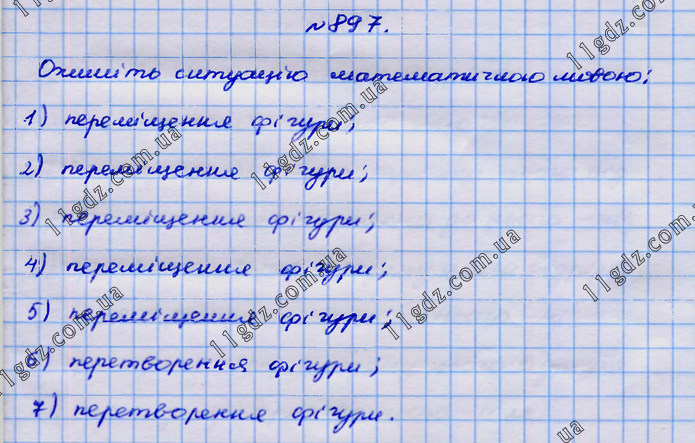 №897.
Опишіть ситуацію математичною мовою:
1) переміщення фігури;
2) переміщення фігури;
3) переміщення фігури;
4) переміщення фігури;
5) переміщення фігури;
6) перетворення фігури;
7) перетворення фігури.
11gdz.com.ua
11gdz.com.ua
11gdz.com.ua
11gdz.com.ua
11gdz.com.ua
11gdz.com.ua
11gdz.com.ua
11gdz.com.ua
11gdz.com.ua
ua